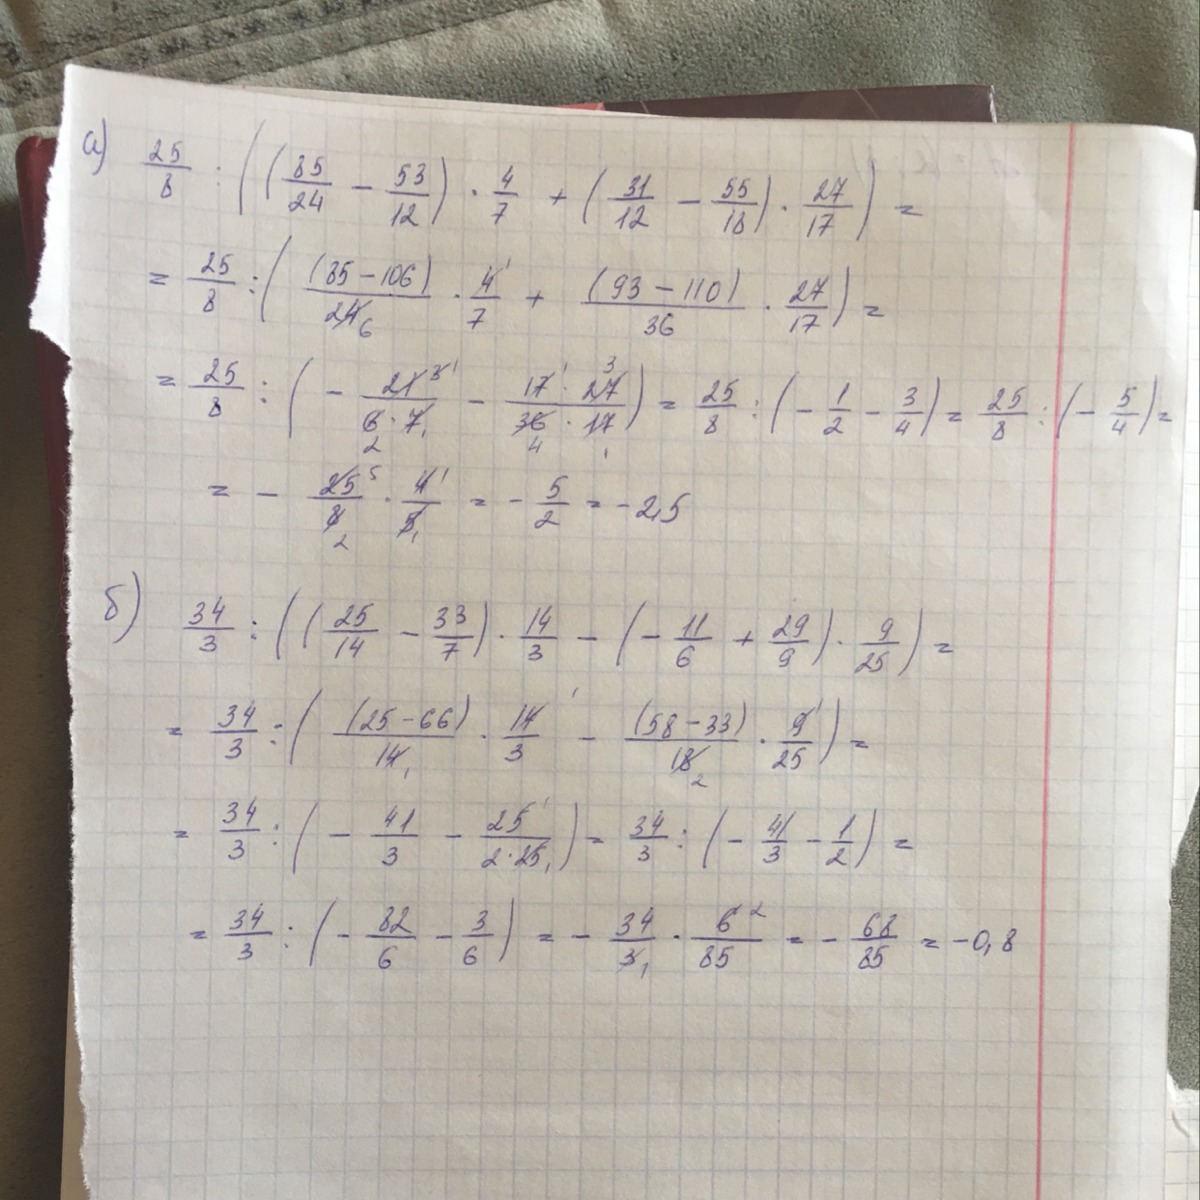 а) 25/8 : ((85/24 - 53/12) · 4/7 + (31/12 - 55/18) · 27/17) =
= 25/8 : ((85-106)/24 6 · 4 1/7 + (93-110)/36 · 27/17) =
= 25/8 : (- 21 3 1/6 2 · 7 1 - 17 1 · 27 3/36 4 · 17 1) = 25/8 : (- 1/2 - 3/4) = 25/8 : (- 5/4) =
= - 25 5/8 2 · 4 1/5 1 = - 5/2 = -2,5
б) 34/3 : ((25/14 - 33/7) · 14/3 - (- 11/6 + 29/9) · 9/25) =
= 34/3 : ((25-66)/14 1 · 14 1/3 - (58-33)/18 2 · 9 1/25) =
= 34/3 : (- 41/3 - 25 1/2·25 1) = 34/3 : (- 41/3 - 1/2) =
= 34/3 : (- 82/6 - 3/6) = - 34/3 1 · 6 2/85 = - 68/85 = -0,8